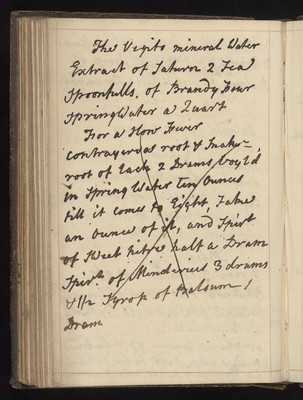 The Vegito mineral Water
Extract of Saturn 2 Tea
Spoonfulls, of Brandy Four
Spring Water a Quart
For a Slow Fever
Contrayerva root & Snake-
root of Each 2 Drams, boyl'd
in Spring Water Ten Ounces
till it comes to Eight, Take
an ounce of it, and Spirt
of Sweet Nitre half a Dram
Spirts of Mindereri 3 drams
& 1/2 Syrop of Balsum 1
Dram